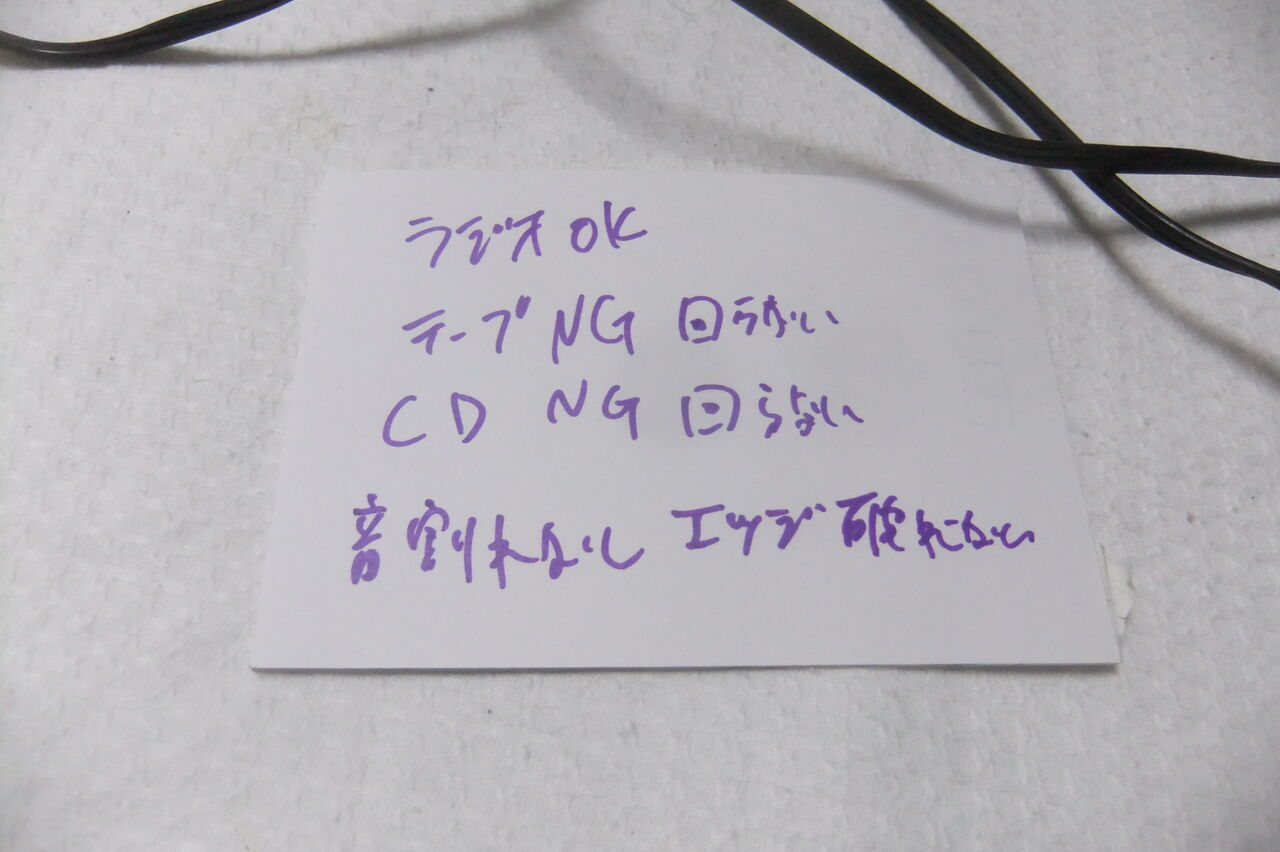 ラジオ OK
テープ NG 回らない
CD NG 回らない
音割れなし エッジ破れなし